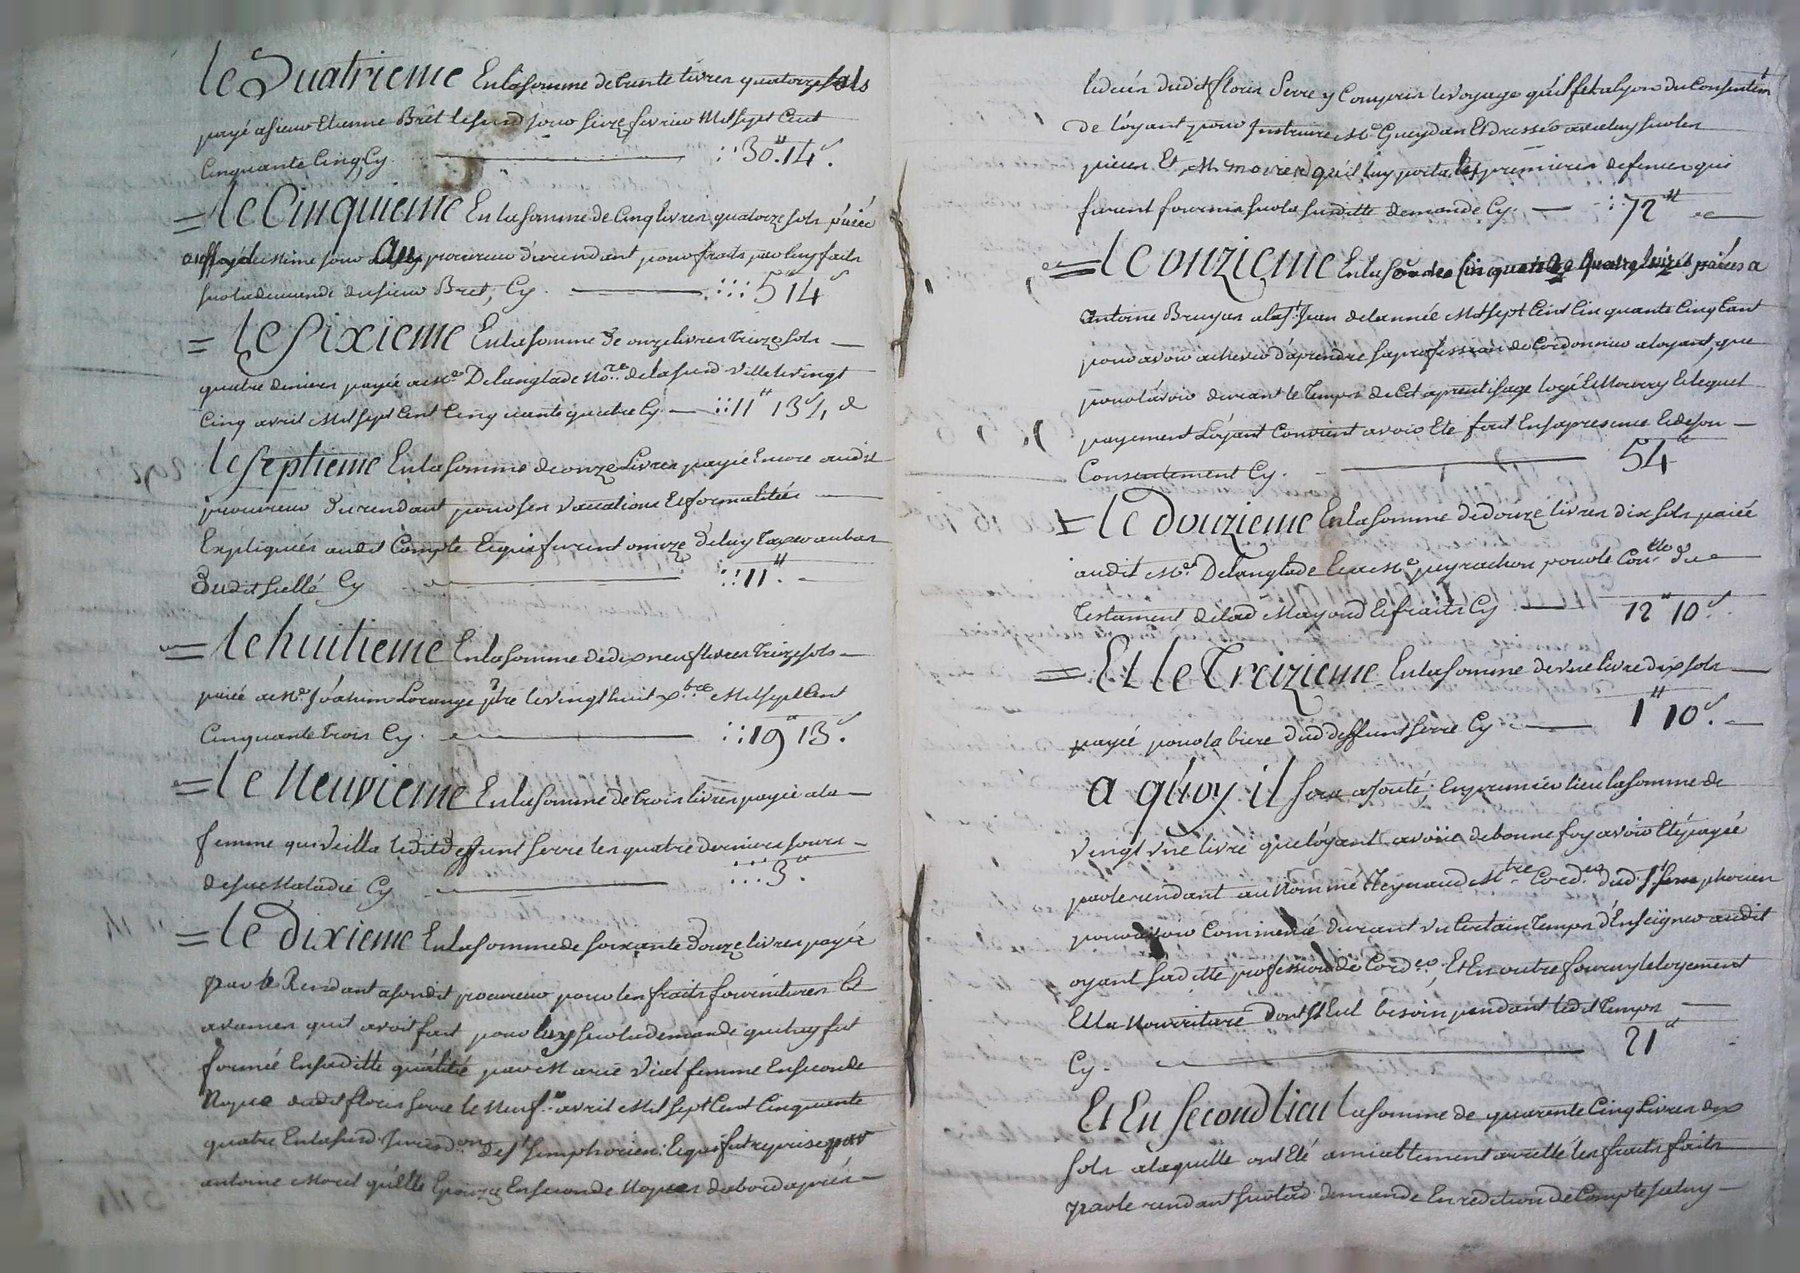 le Quatrieme En la somme de trente livres quatorze sols
payé a sieur Etienne Brêt le susd jour seize fevrier Mil sept Cent
Cinquante Cinq Cy 30 " 14 s
= le Cinquieme En la somme de Cinq livres quatorze sols paiée
procureur du rendant pour frais par luy faits
sur la demande du sieur Bret, Cy 5 14 s
= le Sixieme En la somme de onze livres treize sols
quatre deniers payée a Me Delanglade No.re de la susd ville le vingt
Cinq avril Mil sept Cent Cinquante quatre Cy 11 " 13 s 4 d
le Septieme En la somme de onze Livres payée Encore audit
procureur du rendant pour ses vacations Et formalitées
Expliquées audit Compte Et qui furent omize de luy taxer au bas
Dudit scellé Cy 11 "
= le huitieme En la somme de dix neuf livres treize sols
paiée a Me Joachim Lorange ptre le vingt huit xbre Mil sept Cent
Cinquante trois Cy 19 " 13 s
= le Neuvieme En la somme de trois livres payée a la
femme qui veilla ledit deffunt Serre les quatre derniers jours
de sa Maladie Cy 3 "
= le dixieme En la somme de soixante Douze livres payée
par le Rendant a sondit procureur pour les frais fournitures Et
avances qu'il avoit fait pour luy sur la demande qui luy fut
formée En saditte qualitié par Marie Vial femme En seconde
Nopce dudit floris Serre le Neuf.e avril Mil sept Cent Cinquante
quatre En la susd Jurisd.on de St Simphorien Et qui fut reprise par
antoine Morel qu'elle Epouza En seconde Nopces d'abord après
le decés dudit floris Serre y Compris le voyage qu'il fit a lyon du Consentem.t
de l'oyant pour Instruire Me Gueydan Et dresser avec luy sur les
pieces Et Memoires qu'il luy porta les premieres defences qui
furent fournies sur la susditte demande Cy 72 "
= le onzieme En la somme Cinquante quatre livres paiées a
antoine Bruyas a la St Jean de l'année Mil sept Cent Cinquante Cinq tant
pour avoir achevé d'aprendre sa profession de Cordonnier a loyant, que
pour l'avoir durant le temps de Cet aprentisage logé Et Nourry Et lequel
payement Loyant Convient avoir Eté fait En sa presence Et de son
Consentement Cy 54 "
= le douzieme En la somme de douze livres dix sols paiée
audit Me Delanglade Et a Me peyrachon pour le Con.lle du
testament de lad Mayoud Et frais Cy 12 " 10 s
= Et le Treizieme En la somme de une livre dix sols
payée pour la biere dud deffunt Serre Cy 1 " 10 s
a quoy il sera ajouté, En premier lieu la somme de
vingt une livre que loyant avoüe de bonne foy avoir Eté payée
par le rendant au Nommé Reynaud M.tre Cord.er dud St Simphorien
pour avoir Commencé durant un Certain temps d'Enseigner audit
oyant saditte profession de Cord.er, Et En outre fourny le logement
Et la Nourriture dont il Eut besoin pendant ledit temps
Cy 21 "
Et En Second lieu la somme de quarente Cinq Livres dix
sols a laquelle ont Eté amiablement arretté les frais faits
par le rendant sur lad demande En redition de Compte a luy